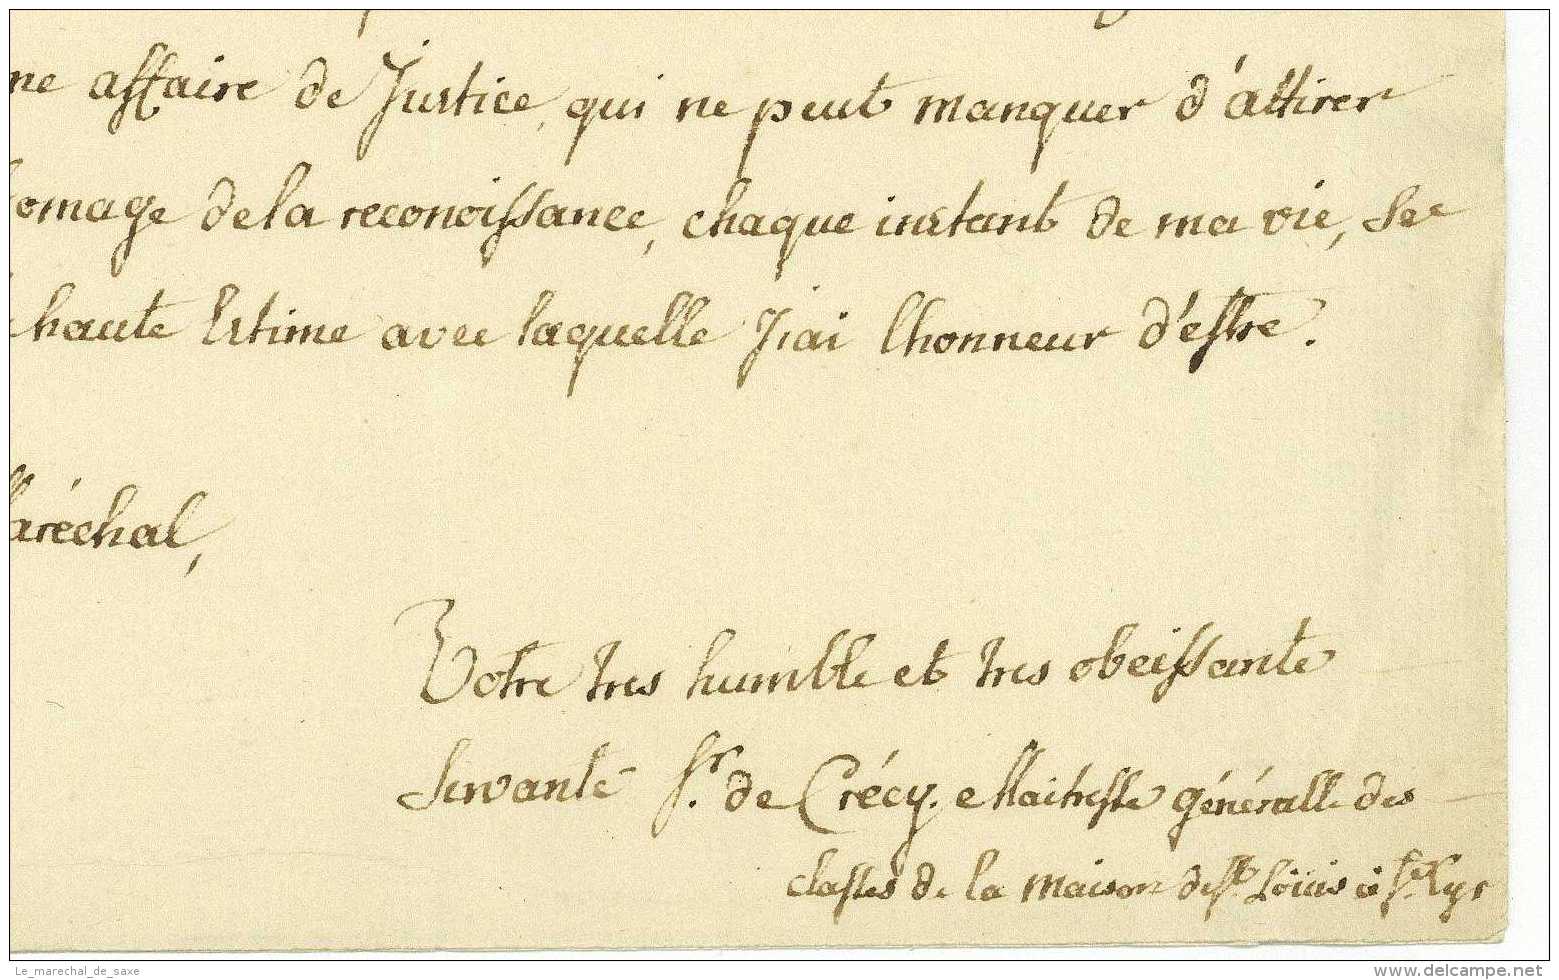 ne affaire de Justice, qui ne peut manquer d'attirer
omage de la reconoissance, chaque instant de ma vie,
haute Estime avec laquelle J'ai l'honneur d'estre.
aréchal,
Votre tres humble et tres obeissante
servante Sr. de Crécy. Maitresse généralle des
classes de la maison de St. Loüis à St. Cyr
Le_marechal_de_saxe
www.delcampe.net